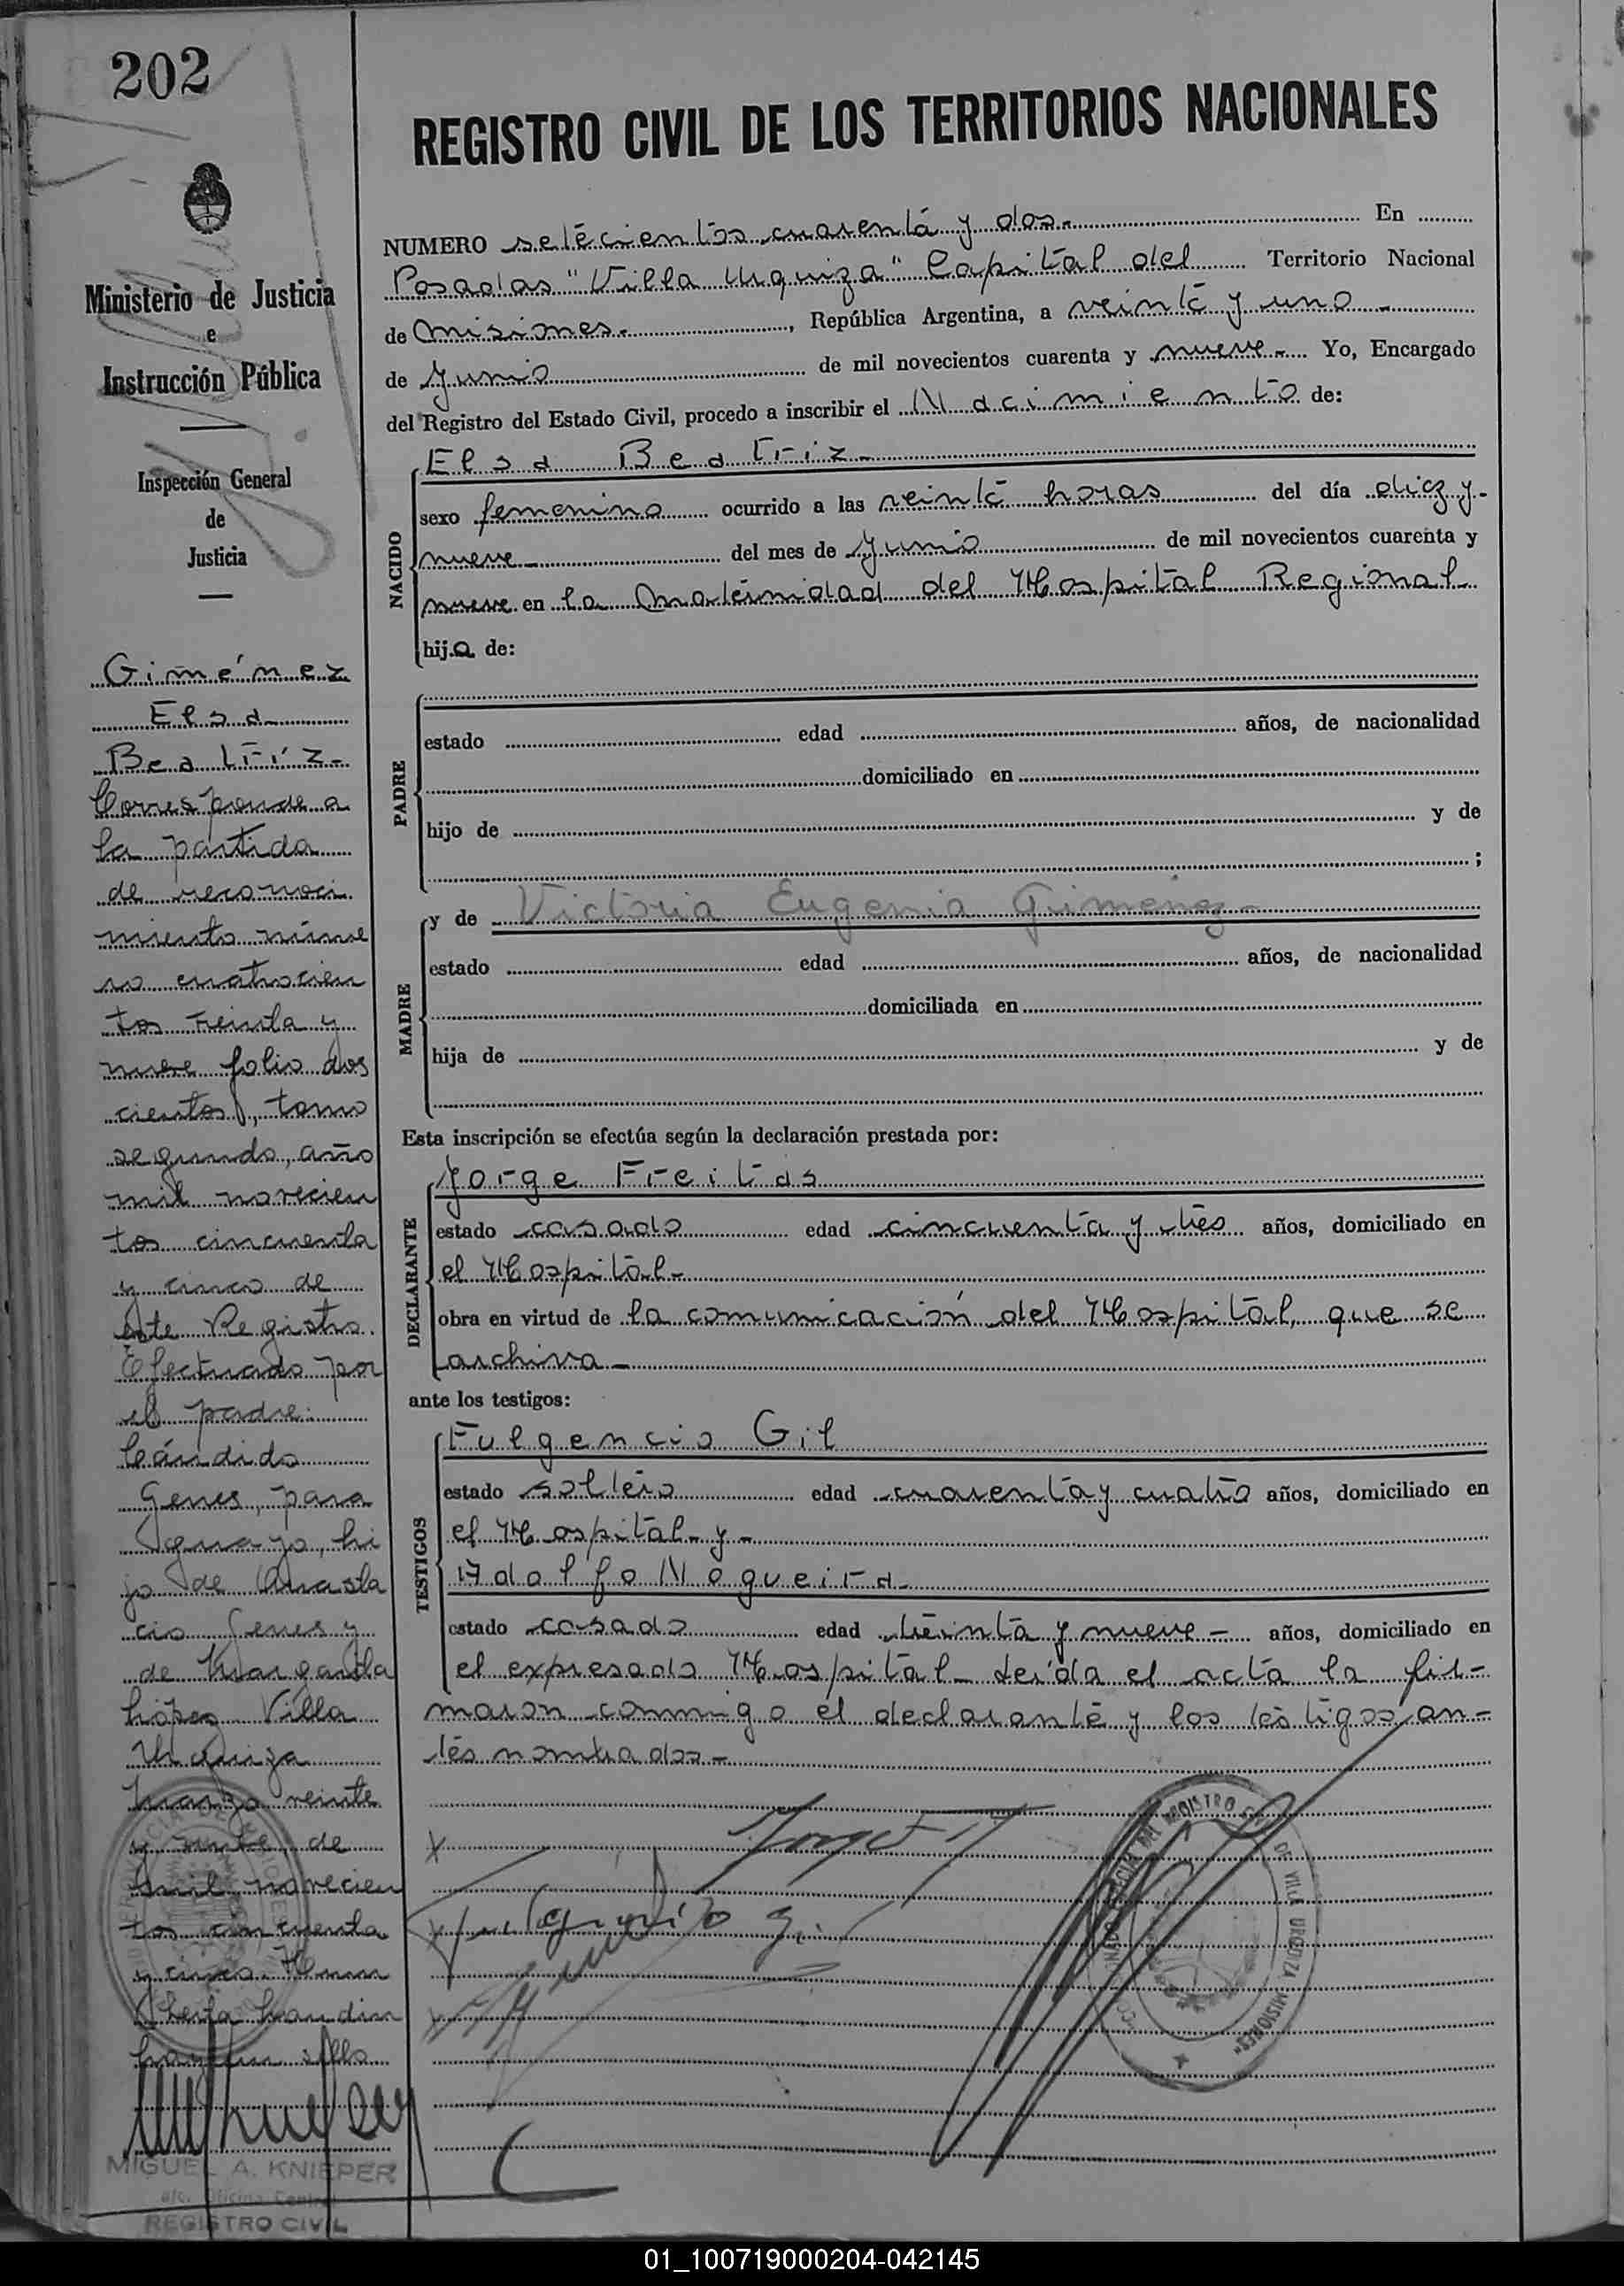 202
Ministerio de Justicia
e
Instrucción Pública
Inspección General
de
Justicia
Giménez
Elsa
Beatriz.-
Corresponde a
la partida
de reconoci
miento núme
ro cuatrocien
tos treinta y
nueve folio dos
cientos, tomo
segundo, año
mil novecien
tos cincuenta
y cinco de
este Registro.
Efectuado por
el padre:
Cándido
Genes, para
guayo, hi
jo de Anasta
cio Genes y
de Margarita
López Villa
Urquiza
Marzo veinte
y de
mil novecien
tos cincuenta
y cinco.
MIGUEL A. KNIEPER
REGISTRO CIVIL
REGISTRO CIVIL DE LOS TERRITORIOS NACIONALES
NUMERO setecientos cuarenta y dos.- En
Posadas "Villa Urquiza" Capital del Territorio Nacional
de Misiones.-, República Argentina, a veinte y uno -
de Junio de mil novecientos cuarenta y nueve.- Yo, Encargado
del Registro del Estado Civil, procedo a inscribir el Nacimiento de:
Elsa Beatriz.-
NACIDO
sexo femenino ocurrido a las veinte horas del día diez y-
nueve - del mes de Junio de mil novecientos cuarenta y
nueve en la Maternidad del Hospital Regional-
hija de:
PADRE
estado edad años, de nacionalidad
domiciliado en
hijo de y de
;
MADRE
y de Victoria Eugenia Gimenez-
estado edad años, de nacionalidad
domiciliada en
hija de y de
Esta inscripción se efectúa según la declaración prestada por:
Jorge Freitas
DECLARANTE
estado casado edad cincuenta y tres años, domiciliado en
el Hospital-
obra en virtud de la comunicación del Hospital, que se
archiva -
ante los testigos:
Fulgencio Gil
TESTIGOS
estado soltero edad cuarenta y cuatro años, domiciliado en
el Hospital- y -
Adolfo Nogueira.
estado casado edad treinta y nueve - años, domiciliado en
el expresado Hospital- Leída el acta la fir-
maron conmigo el declarante y los testigos an-
tes nombrados -
REGISTRO DE VILLA URQUIZA "MISIONES"
01_100719000204-042145